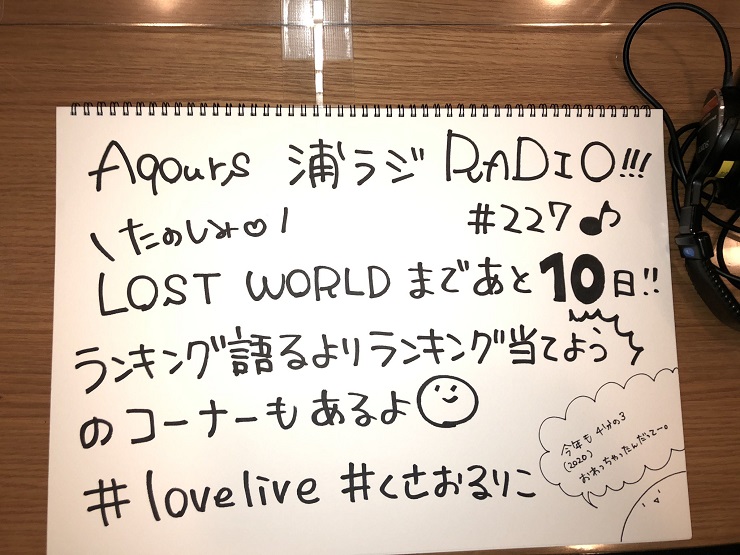 Aqours 浦ラジ RADIO!!!
\たのしみ♡/ #227♪
LOST WORLD まであと10日!!
ランキング語るよりランキング当てよう
のコーナーもあるよ
#lovelive #くさおるりこ
今年も4分の3
(2020)
おわっちゃったんだってー。